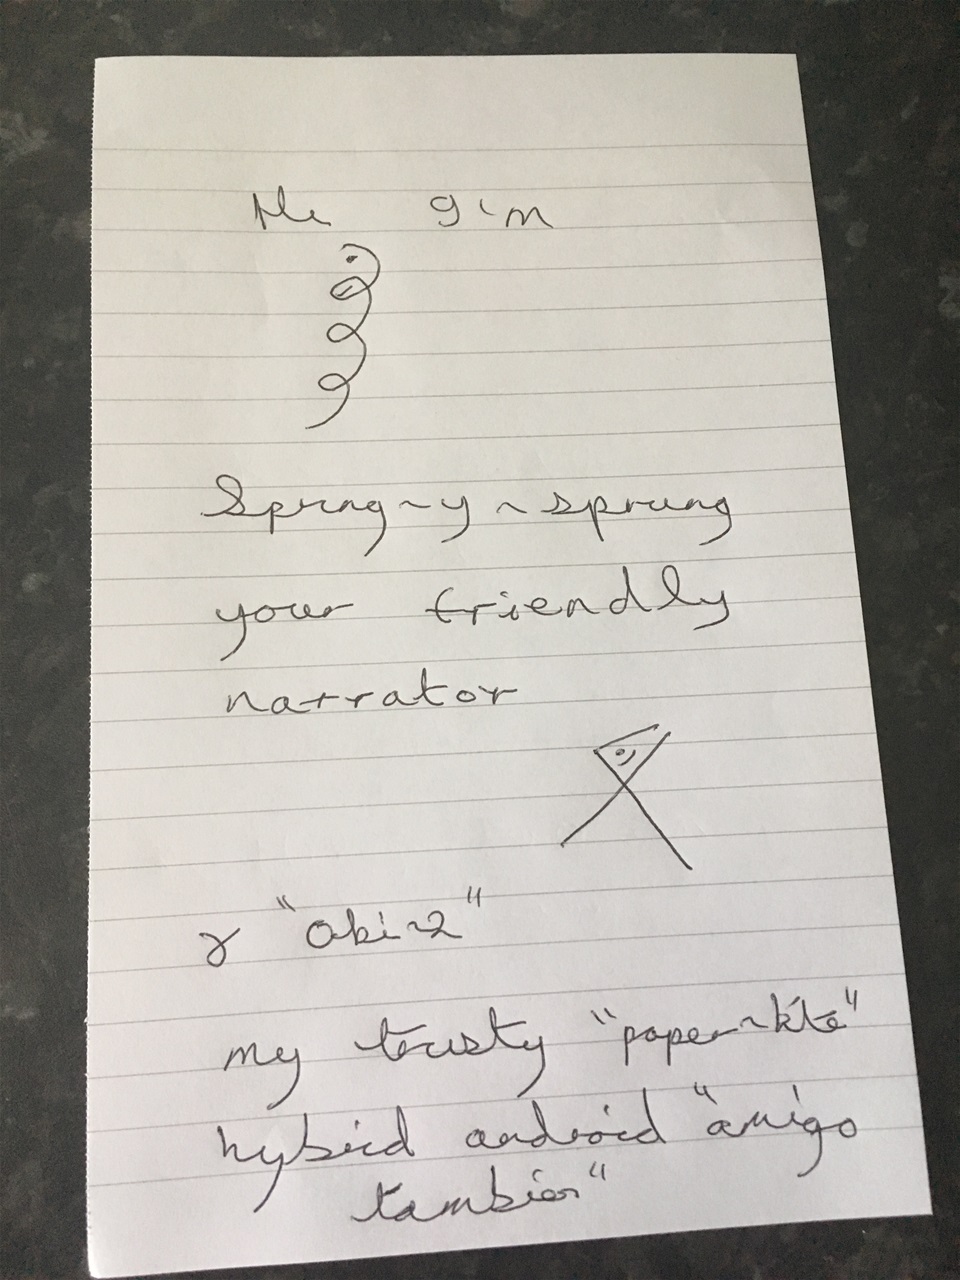 Hi I'm
Spring~y~sprung
your friendly
narrator
& "Obi~2"
my trusty "paper~kite"
hybrid android "amigo
tambien"